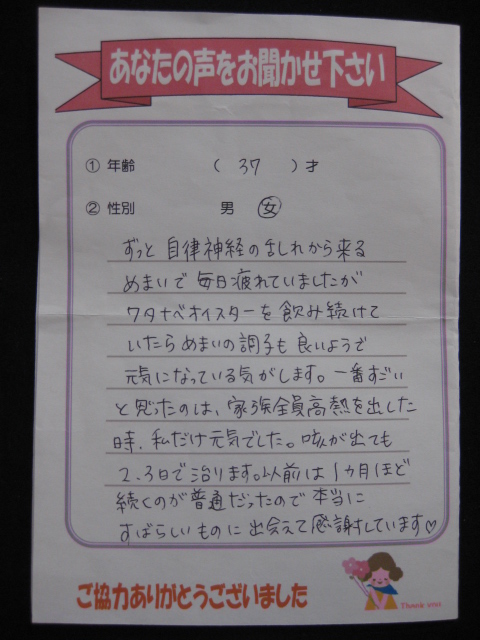 あなたの声をお聞かせ下さい
① 年齢 ( 37 ) 才
② 性別 男 女
ずっと 自律神経の乱れから来る
めまいで 毎日疲れていましたが
ワタナベオイスターを 飲み続けて
いたら めまいの調子も 良いようで
元気になっている気がします。一番すごい
と思ったのは、家族全員高熱を出した
時、私だけ元気でした。咳が出ても
2、3日で治ります。以前は1ヵ月ほど
続くのが普通だったので 本当に
すばらしいものに 出会えて感謝しています♡
ご協力ありがとうございました
Thank you